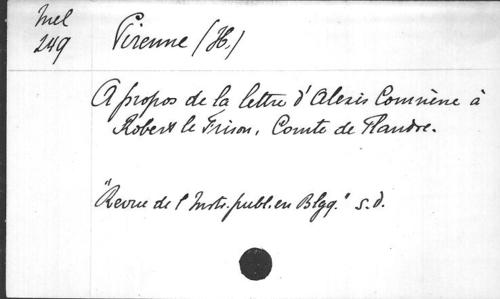 Mel
249
Pirenne (H.)
A propos de la lettre d'Alexis Comnène à
Robert le Frison, Comte de Flandre.
"Revue de l'Instr. publ. en Blgq." s.d.